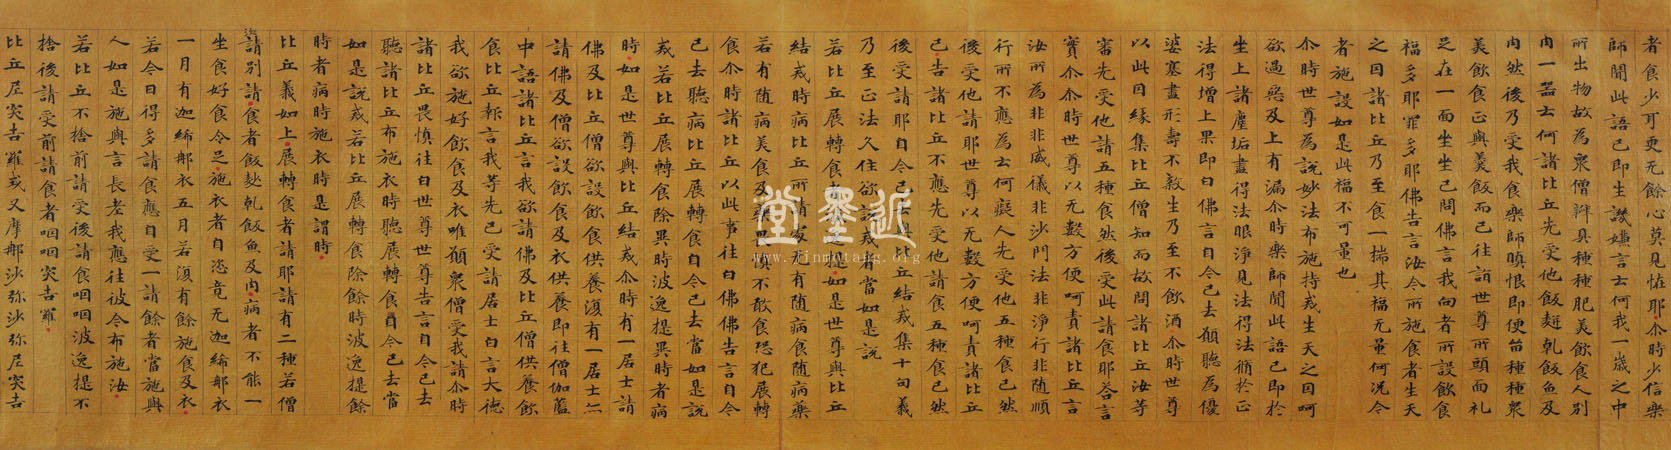 者食少可更无餘心莫見恠耶尒時少信樂
師聞此語已即生譏嫌言云何我一歲之中
所出物故為衆僧辦具種種肥美飲食人別
肉一器云何諸比丘先受他飯麨乹飯魚及
肉然後乃受我食樂師瞋恨即便留種種衆
美飲食止與羹飯而已往詣世尊所頭面礼
足在一面坐坐已問佛言我向者所設飲食
福多耶罪多耶佛告言汝今所施食者生天
之因諸比丘乃至食一揣其福无量何况今
者施設如是此福不可量也
尒時世尊為說妙法布施持戒生天之因呵
欲過惡及上有漏尒時樂師聞此語已即於
坐上諸塵垢盡得法眼淨見法得法循於正
法得增上果即白佛言自今已去願聽為優
婆塞盡形壽不殺生乃至不飲酒尒時世尊
以此因緣集比丘僧知而故問諸比丘汝等
審先受他請五種食然後受此請食耶荅言
實尒尒時世尊以无數方便呵責諸比丘言
汝所為非非威儀非沙門法非淨行非随順
行所不應為云何癡人先受他五種食已然
後受他請耶世尊以无數方便呵責諸比丘
已告諸比丘不應先受他請食五種食已然
後受請耶自今已去與比丘結戒集十句義
乃至正法久住欲說戒者當如是說
若比丘展轉食者波逸提如是世尊與比丘
結戒時病比丘所請處无有随病食随病藥
若有随病美食及藥畏慎不敢食恐犯展轉
食尒時諸比丘以此事往白佛佛告言自今
已去聽病比丘展轉食自今已去當如是說
戒若比丘展轉食除異時波逸提異時者病
時如是世尊與比丘結戒尒時有一居士請
佛及比丘僧欲設飲食供養復有一居士亦
請佛及僧欲設飲食及衣供養即往僧伽藍
中語諸比丘言我欲請佛及比丘僧供養飲
食比丘報言我等先已受請居士白言大德
我欲施好飲食及衣唯願衆僧受我請尒時
諸比丘畏慎往白世尊世尊告言自今已去
聽諸比丘布施衣時聽展轉食自今已去當
如是說戒若比丘展轉食除餘時波逸提餘
時者病時施衣時是謂時
比丘義如上展轉食者請耶請有二種若僧
請別請食者飯麨乹飯魚及肉病者不能一
坐食好食令足施衣者自恣竟无迦絺那衣
一月有迦絺那衣五月若復有餘施食及衣
若今日得多請食應自受一請餘者當施與
人如是施與言長老我應往彼今布施汝
若比丘不捨前請受後請食咽咽波逸提不
捨後請受前請食者咽咽突吉羅
比丘尼突吉羅式叉摩那沙弥沙弥尼突吉
近墨堂
www.jinmotang.org